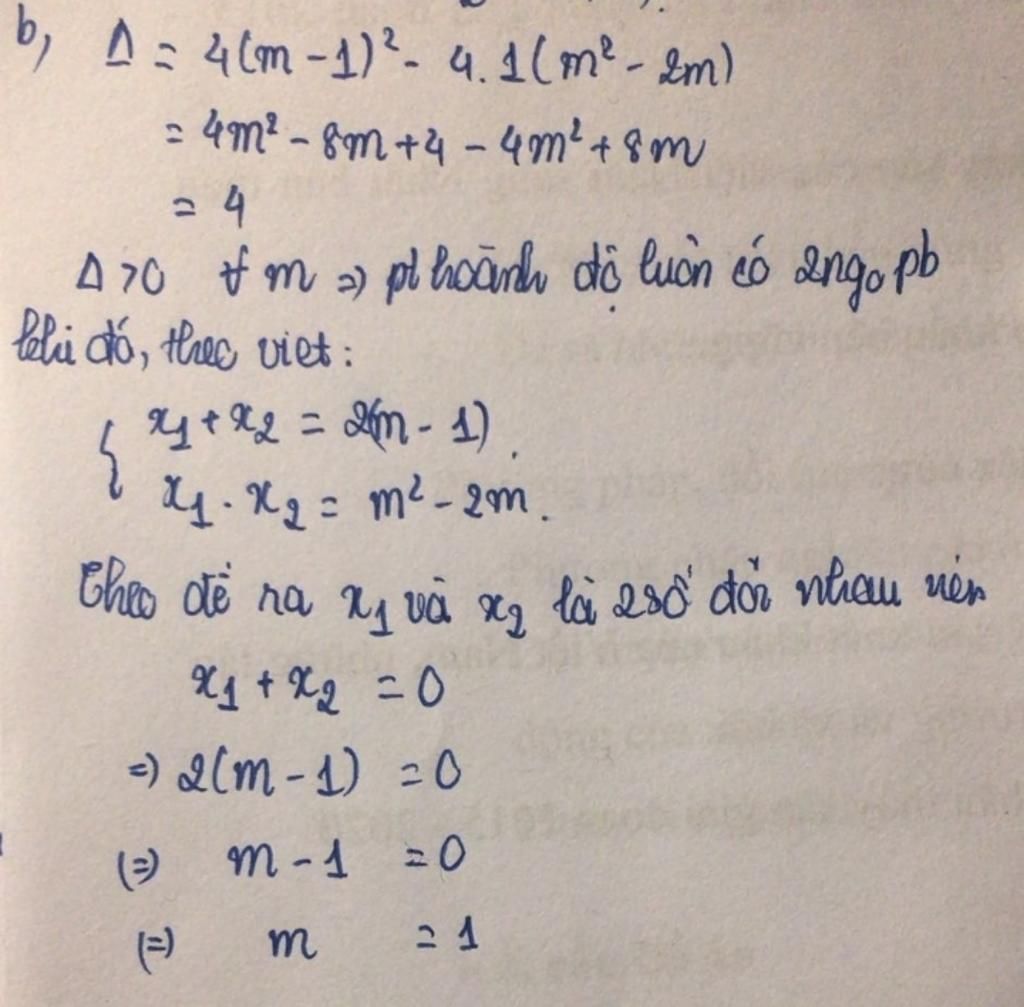 b, Δ = 4(m - 1)² - 4.1(m² - 2m)
= 4m² - 8m + 4 - 4m² + 8m
= 4
Δ > 0 ∀ m => pt hoành độ luôn có 2 ngo pb
khi đó, theo viet:
{ x₁ + x₂ = 2(m - 1).
x₁ . x₂ = m² - 2m.
Theo đề ra x₁ và x₂ là 2 số đối nhau nên
x₁ + x₂ = 0
=> 2(m - 1) = 0
(=) m - 1 = 0
(=) m = 1